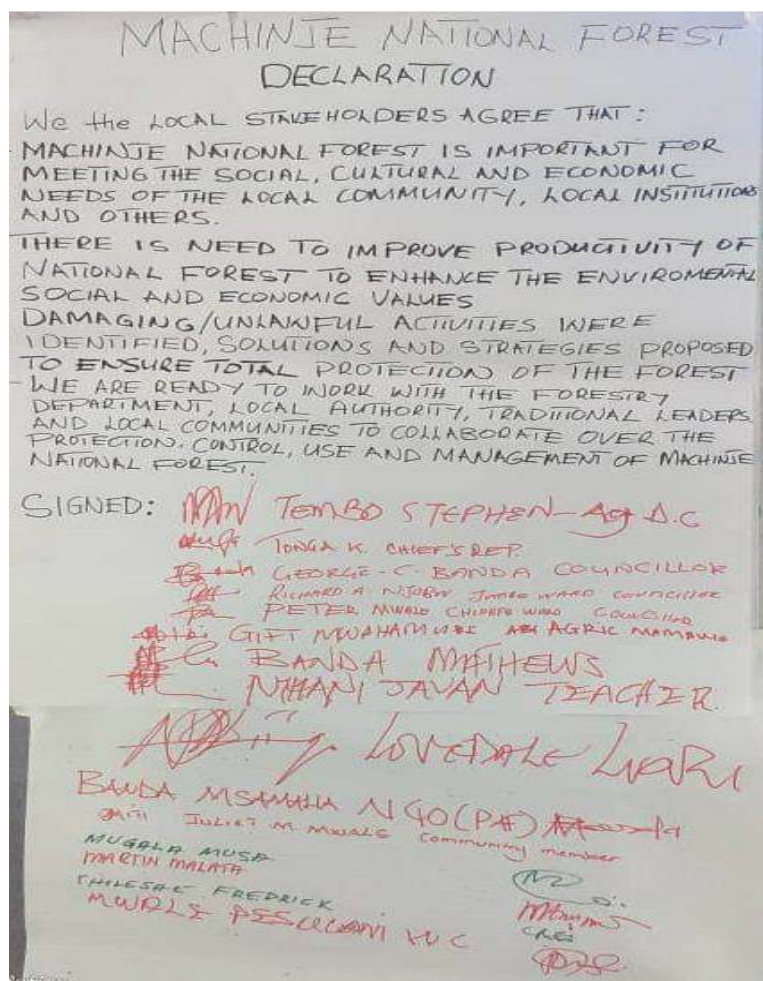 MACHINJE NATIONAL FOREST
DECLARATION
We the LOCAL STAKEHOLDERS AGREE THAT :
- MACHINJE NATIONAL FOREST IS IMPORTANT FOR
MEETING THE SOCIAL, CULTURAL AND ECONOMIC
NEEDS OF THE LOCAL COMMUNITY, LOCAL INSTITUTIONS
AND OTHERS.
THERE IS NEED TO IMPROVE PRODUCTIVITY OF
NATIONAL FOREST TO ENHANCE THE ENVIROMENTAL
SOCIAL AND ECONOMIC VALUES
DAMAGING/UNLAWFUL ACTIVITIES WERE
IDENTIFIED, SOLUTIONS AND STRATEGIES PROPOSED
TO ENSURE TOTAL PROTECTION OF THE FOREST
- WE ARE READY TO WORK WITH THE FORESTRY
DEPARTMENT, LOCAL AUTHORITY, TRADITIONAL LEADERS
AND LOCAL COMMUNITIES TO COLLABORATE OVER THE
PROTECTION, CONTROL, USE AND MANAGEMENT OF MACHINJE
NATIONAL FOREST.
SIGNED: TEMBO STEPHEN - Ag D.C
TONGA K. CHIEF'S REP.
GEORGE - C. BANDA COUNCILLOR
RICHARD A. WARD COUNCILLOR
PETER MWALE WARD
GIFT AGRIC
BANDA MATHEWS
JAVAN TEACHER
LOVEDALE
BANDA NGO
JULIET M. MWALE Community member
MUGALA MUSA
MARTIN MALATA
FREDRICK
MWALE